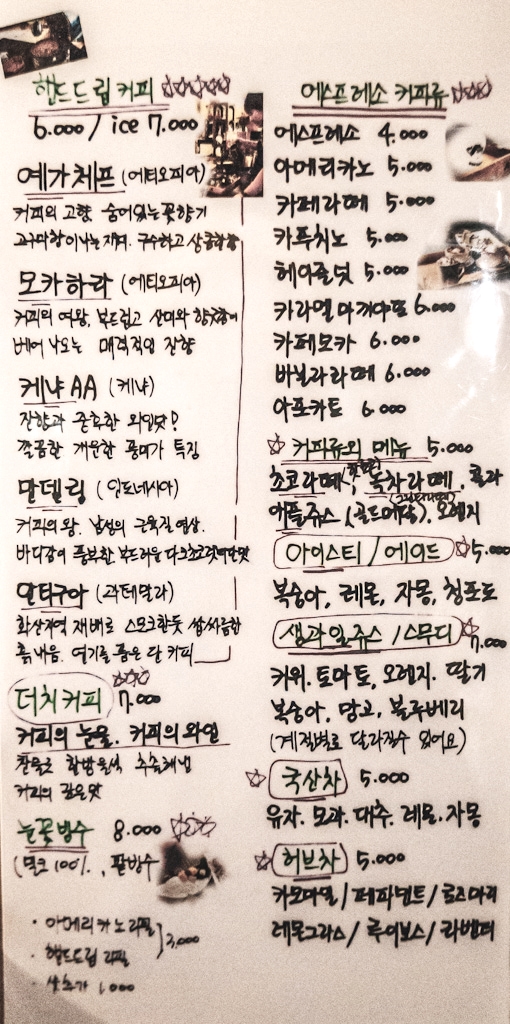 핸드드립 커피 ☆☆☆☆☆
6.000 / ice 7.000
예가체프 (에티오피아)
커피의 고향 숨어있는 꽃향기
고구마향이나는 구수하고 상큼함
모카하라 (에티오피아)
커피의 여왕, 부드럽고 산미와 향긋함이
베어 나오는 매력적인 잔향
케냐 AA (케냐)
잔향과 중후한 와인맛?
깔끔한 개운한 풍미가 특징
만델링 (인도네시아)
커피의 왕. 남성의 근육질 연상.
바디감이 풍복한 부드러운 다크초코렛 진한맛
안티구아 (과테말라)
화산지역 재배로 스모크한듯 쌉싸름한
흙내음. 연기를 품은 단 커피
☆☆☆
더치커피 7.000
커피의 눈물. 커피의 와인
찬물로 한방울씩 추출해낸
커피의 깊은맛
눈꽃빙수 8.000 ☆☆☆
(밀크 100%. , 팥빙수
· 아메리카노 리필
· 핸드드립 리필 } 3,000
· 샷추가 1.000
에스프레소 커피류 ☆☆☆
에스프레소 4.000
아메리카노 5.000
카페라떼 5.000
카푸치노 5.000
헤이즐넛 5.000
카라멜 마끼아또 6.000
카페모카 6.000
바닐라라떼 6.000
아포카토 6.000
☆ 커피류외 메뉴 5.000
초코라떼, 녹차라떼, 콜라
애플쥬스 (골드메달), 오렌지
아이스티 / 에이드 ☆5.000
복숭아, 레몬, 자몽, 청포도
생과일쥬스 / 스무디 ☆7.000
키위. 토마토, 오렌지. 딸기
복숭아, 망고, 블루베리
(계절별로 달라질수 있어요)
☆ 국산차 5.000
유자. 모과. 대추. 레몬. 자몽
☆ 허브차 5.000
카모마일 / 페퍼민트 / 로즈마리
레몬그라스 / 루이보스 / 라벤더